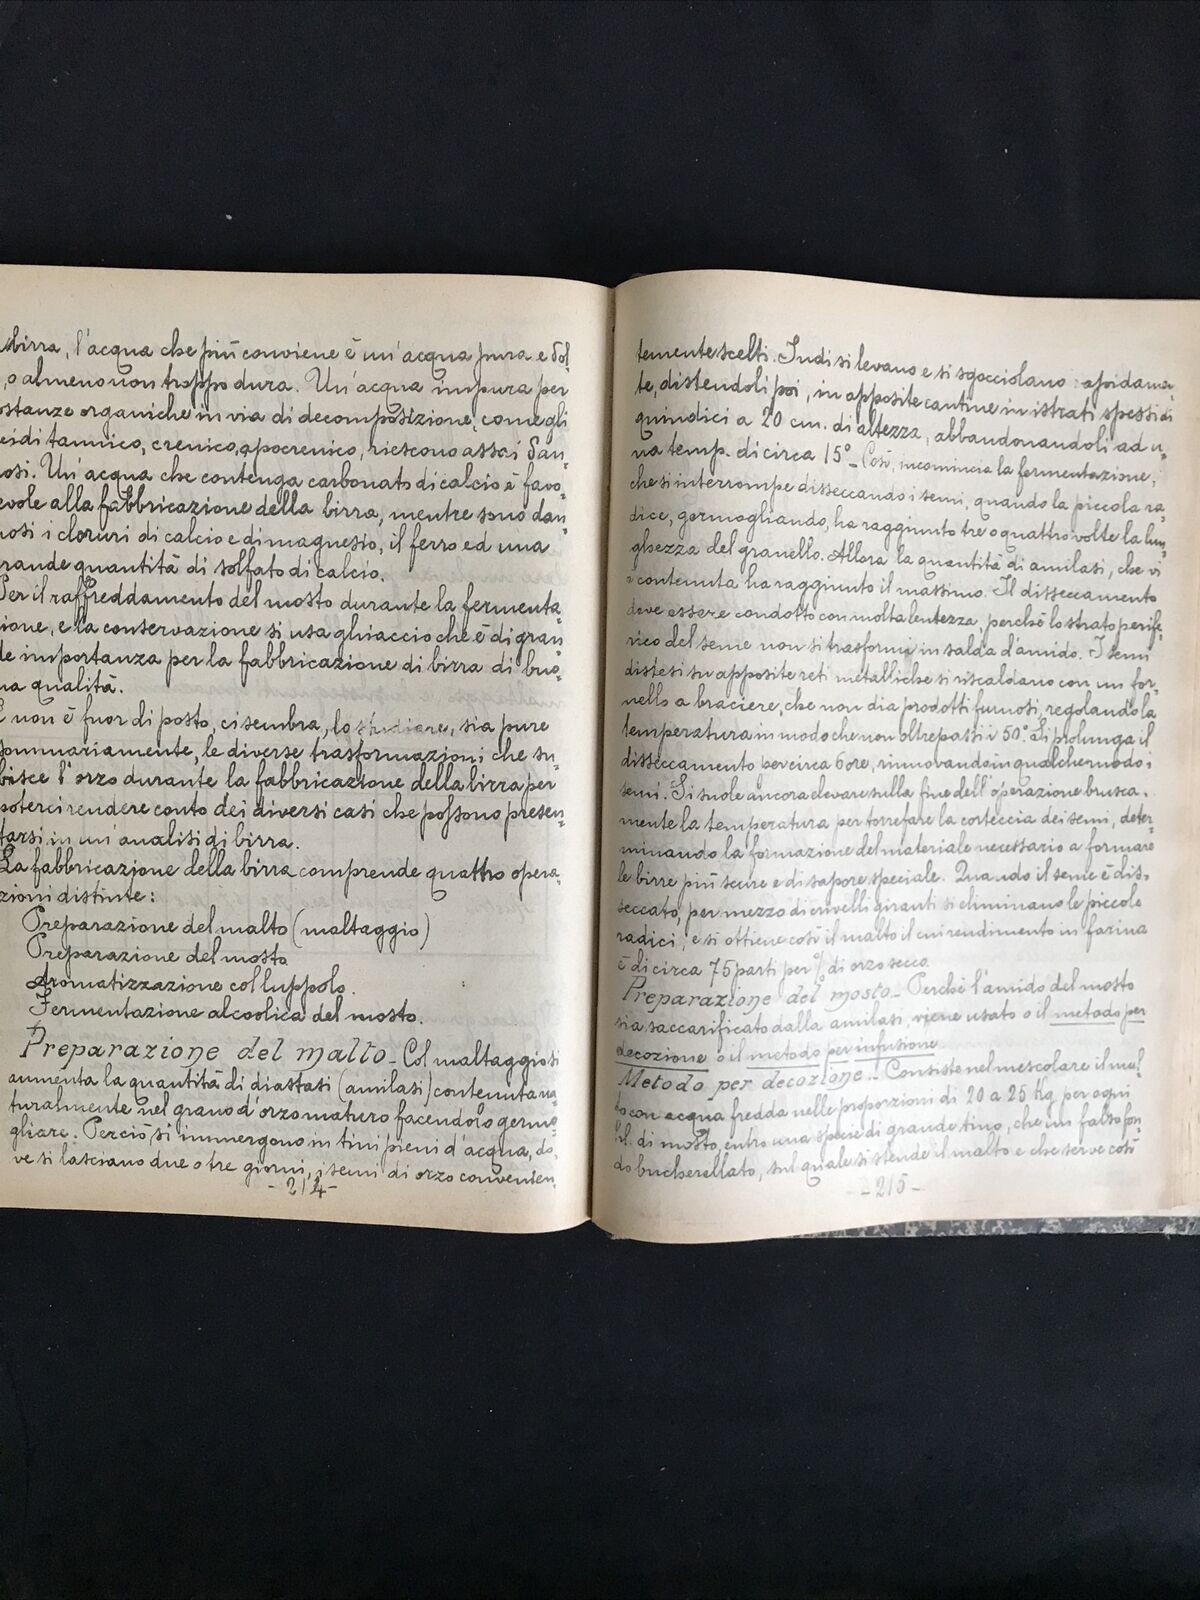 birra, l'acqua che più conviene è un'acqua pura e dol=
,o almeno non troppo dura. Un'acqua impura per
ostanze organiche in via di decomposizione, come gli
cidi tannico, crenico, apocrenico, riescono assai dan=
nosi. Un'acqua che contenga carbonato di calcio è favo=
evole alla fabbricazione della birra, mentre sono dan=
nosi i cloruri di calcio e di magnesio, il ferro ed una
rande quantità di solfato di calcio.
Per il raffreddamento del mosto durante la fermenta
ione, e la conservazione si usa ghiaccio che è di gran=
de importanza per la fabbricazione di birra di buo=
na qualità.
E non è fuor di posto, ci sembra, lo studiare, sia pure
sommariamente, le diverse trasformazioni che su=
bisce l'orzo durante la fabbricazione della birra per
poterci rendere conto dei diversi casi che possono presen=
tarsi in un'analisi di birra.
La fabbricazione della birra comprende quattro opera=
zioni distinte:
Preparazione del malto (maltaggio)
Preparazione del mosto
Aromatizzazione col luppolo.
Fermentazione alcoolica del mosto.
Preparazione del malto - Col maltaggio si
aumenta la quantità di diastasi (amilasi) contenuta na=
turalmente nel grano d'orzo maturo facendolo germo=
gliare. Perciò si immergono in tini pieni d'acqua, do=
ve si lasciano due o tre giorni, i semi di orzo convenien=
- 214 -
temente scelti. Indi si levano e si sgocciolano rapidamen=
te, distendoli poi, in apposite cantine in istrati spessi di
quindici a 20 cm. di altezza, abbandonandoli ad u=
na temp. di circa 15° - Così, incomincia la fermentazione,
che si interrompe disseccando i semi, quando la piccola ra=
dice, germogliando, ha raggiunto tre o quattro volte la lun=
ghezza del granello. Allora la quantità di amilasi, che vi
è contenuta ha raggiunto il massimo. Il disseccamento
deve essere condotto con molta lentezza, perchè lo strato perife=
rico del seme non si trasformi in salda d'amido. I semi
distesi su apposite reti metalliche si riscaldano con un for=
nello a braciere, che non dia prodotti fumosi, regolando la
temperatura in modo che non oltrepassi i 50°. Si prolunga il
disseccamento per circa 6 ore, rinnovando in qualche modo i
semi. Si suole ancora elevare sulla fine dell'operazione brusca=
mente la temperatura per torrefare la corteccia dei semi, deter=
minando la formazione del materiale necessario a formare
le birre più scure e di sapore speciale. Quando il seme è dis=
seccato, per mezzo di crivelli giranti si eliminano le piccole
radici, e si ottiene così il malto il cui rendimento in farina
è di circa 75 parti per % di orzo secco.
Preparazione del mosto - Perchè l'amido del mosto
sia saccarificato dalla amilasi, viene usato o il metodo per
decozione o il metodo per infusione.
Metodo per decozione - Consiste nel mescolare il mal=
to con acqua fredda nelle proporzioni di 20 a 25 Kg per ogni
hl. di mosto, entro una specie di grande tino, che un falso fon=
do bucherellato, sul quale si stende il malto e che serve così
- 215 -